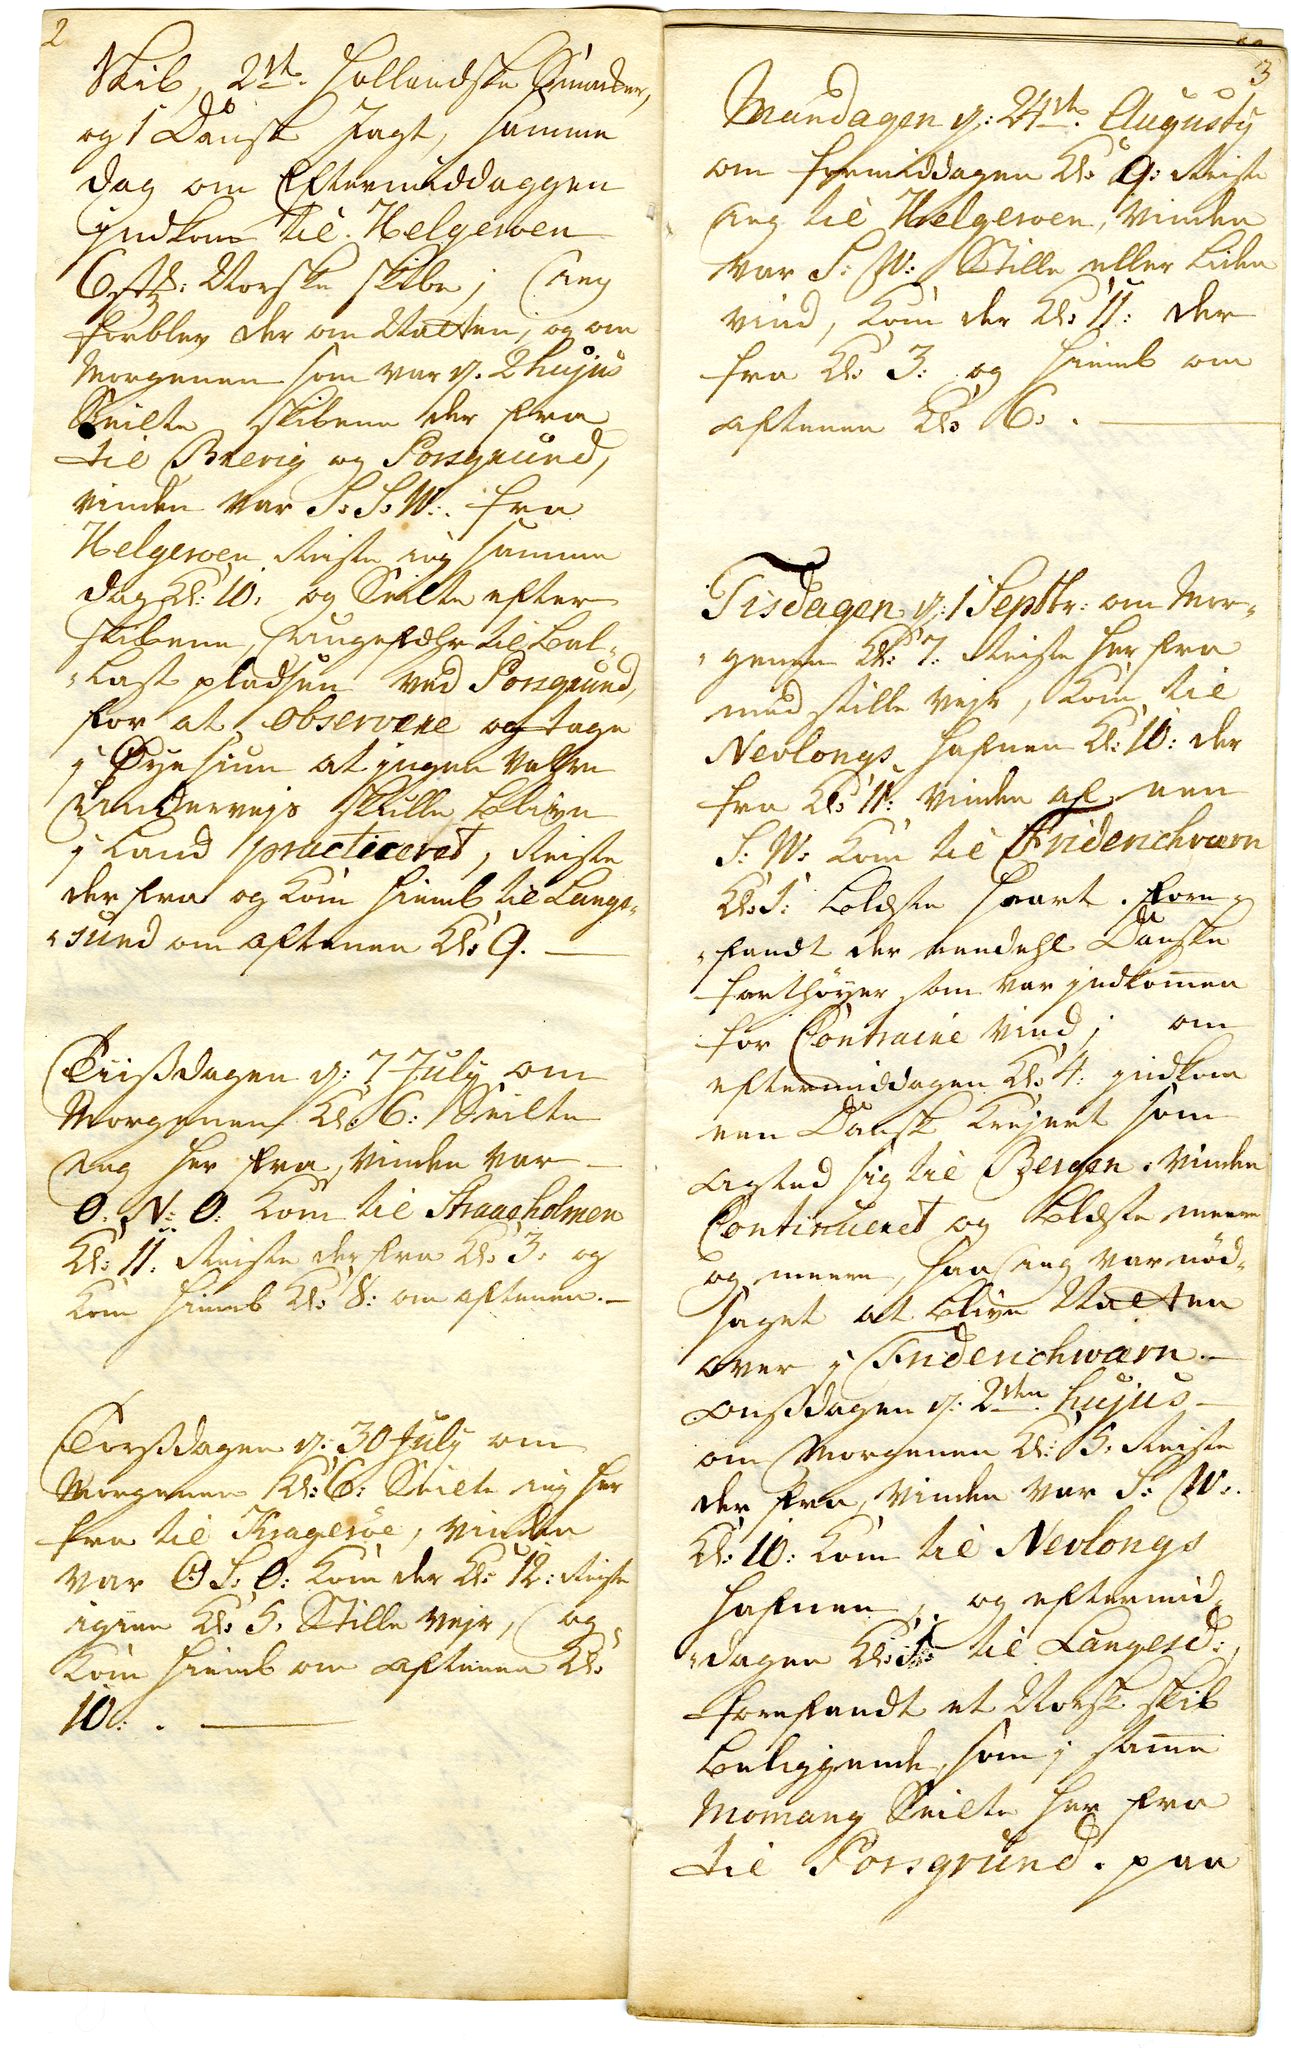 2
Skib, 2st. Hollandske Smacker,
og 1 Dansk Jagt, samme
dag om Eftermiddaggen
jndkom til Helgeroen
6 stk: Norske skibe; Jeg
forblev der om Natten, og om
Morgenen som var d. 2 hujus
Seilte skibene der fra
til Brevig og Porsgrund,
vinden var S: S: W:. fra
Helgeroen Reiste ieg samme
dag Kl: 10, og Seilte efter
skibene, saugefehr til Bal„
„Last pladsen ved Porsgrund,
for at observere og tage
j Øyesiun at jngen Vahre
Undervejs skulle blive
j Land practiceret, Reiste
der fra og kom hiemb til Lange„
„sund om aftenen Kl: 9. —
Tiisdagen d: 7 July om
Morgenen Kl: 6: Seilte
ieg her fra, vinden var —
O. N: O: kom til Straaholmen
Kl: 11. Reiste der fra Kl: 3: og
kom hiemb Kl: 8: om aftenen. —
Torsdagen d: 30 July om
Morgenen Kl: 6: Seilte ieg her
fra til Kragerøe, vinden
var O S: O: kom der Kl: 12: Reiste
igien Kl: 5, Stille vejr, og
kom hiemb om aftenen Kl:
10: . —
3
Mandagen d: 24st. Augusty
om formiddagen Kl: 9: Reiste
ieg til Helgeroen, vinden
var S: W: Stille eller Liden
vind, kom der Kl: 11: der
fra Kl: 3: og hiemb om
aftenen Kl: 6: . —
Tisdagen d: 1 Septbr: om Mor„
„genen Kl: 7: Reiste her fra
med stille vejr, kom til
Nevlongs hafnen Kl: 10: der
fra Kl: 11: vinden af een
S: W: kom til Friderichværn
Kl: 1: blæste haart. fore„
„fandt der eendehl Danske
farthøyer som var jndkommen
for Contrarie vind; om
eftermiddagen Kl: 4: jndkom
een Dansk Krejert som
agted sig til Bergen. vinden
Continueret og blæste meere
og meere, saa ieg var nød„
saget at blive Natten
over j Friderichwærn. —
onsdagen d: 2den hujus —
om Morgenen Kl: 5: Reiste
der fra, vinden var S: W:.
Kl: 10: kom til Nevlongs
hafnen, og eftermid„
„dagen Kl: 1: til Langesd:,
forefandt et Norsk skib
beliggende, som j samme
Momang Seilte her fra
til Porsgrund. paa